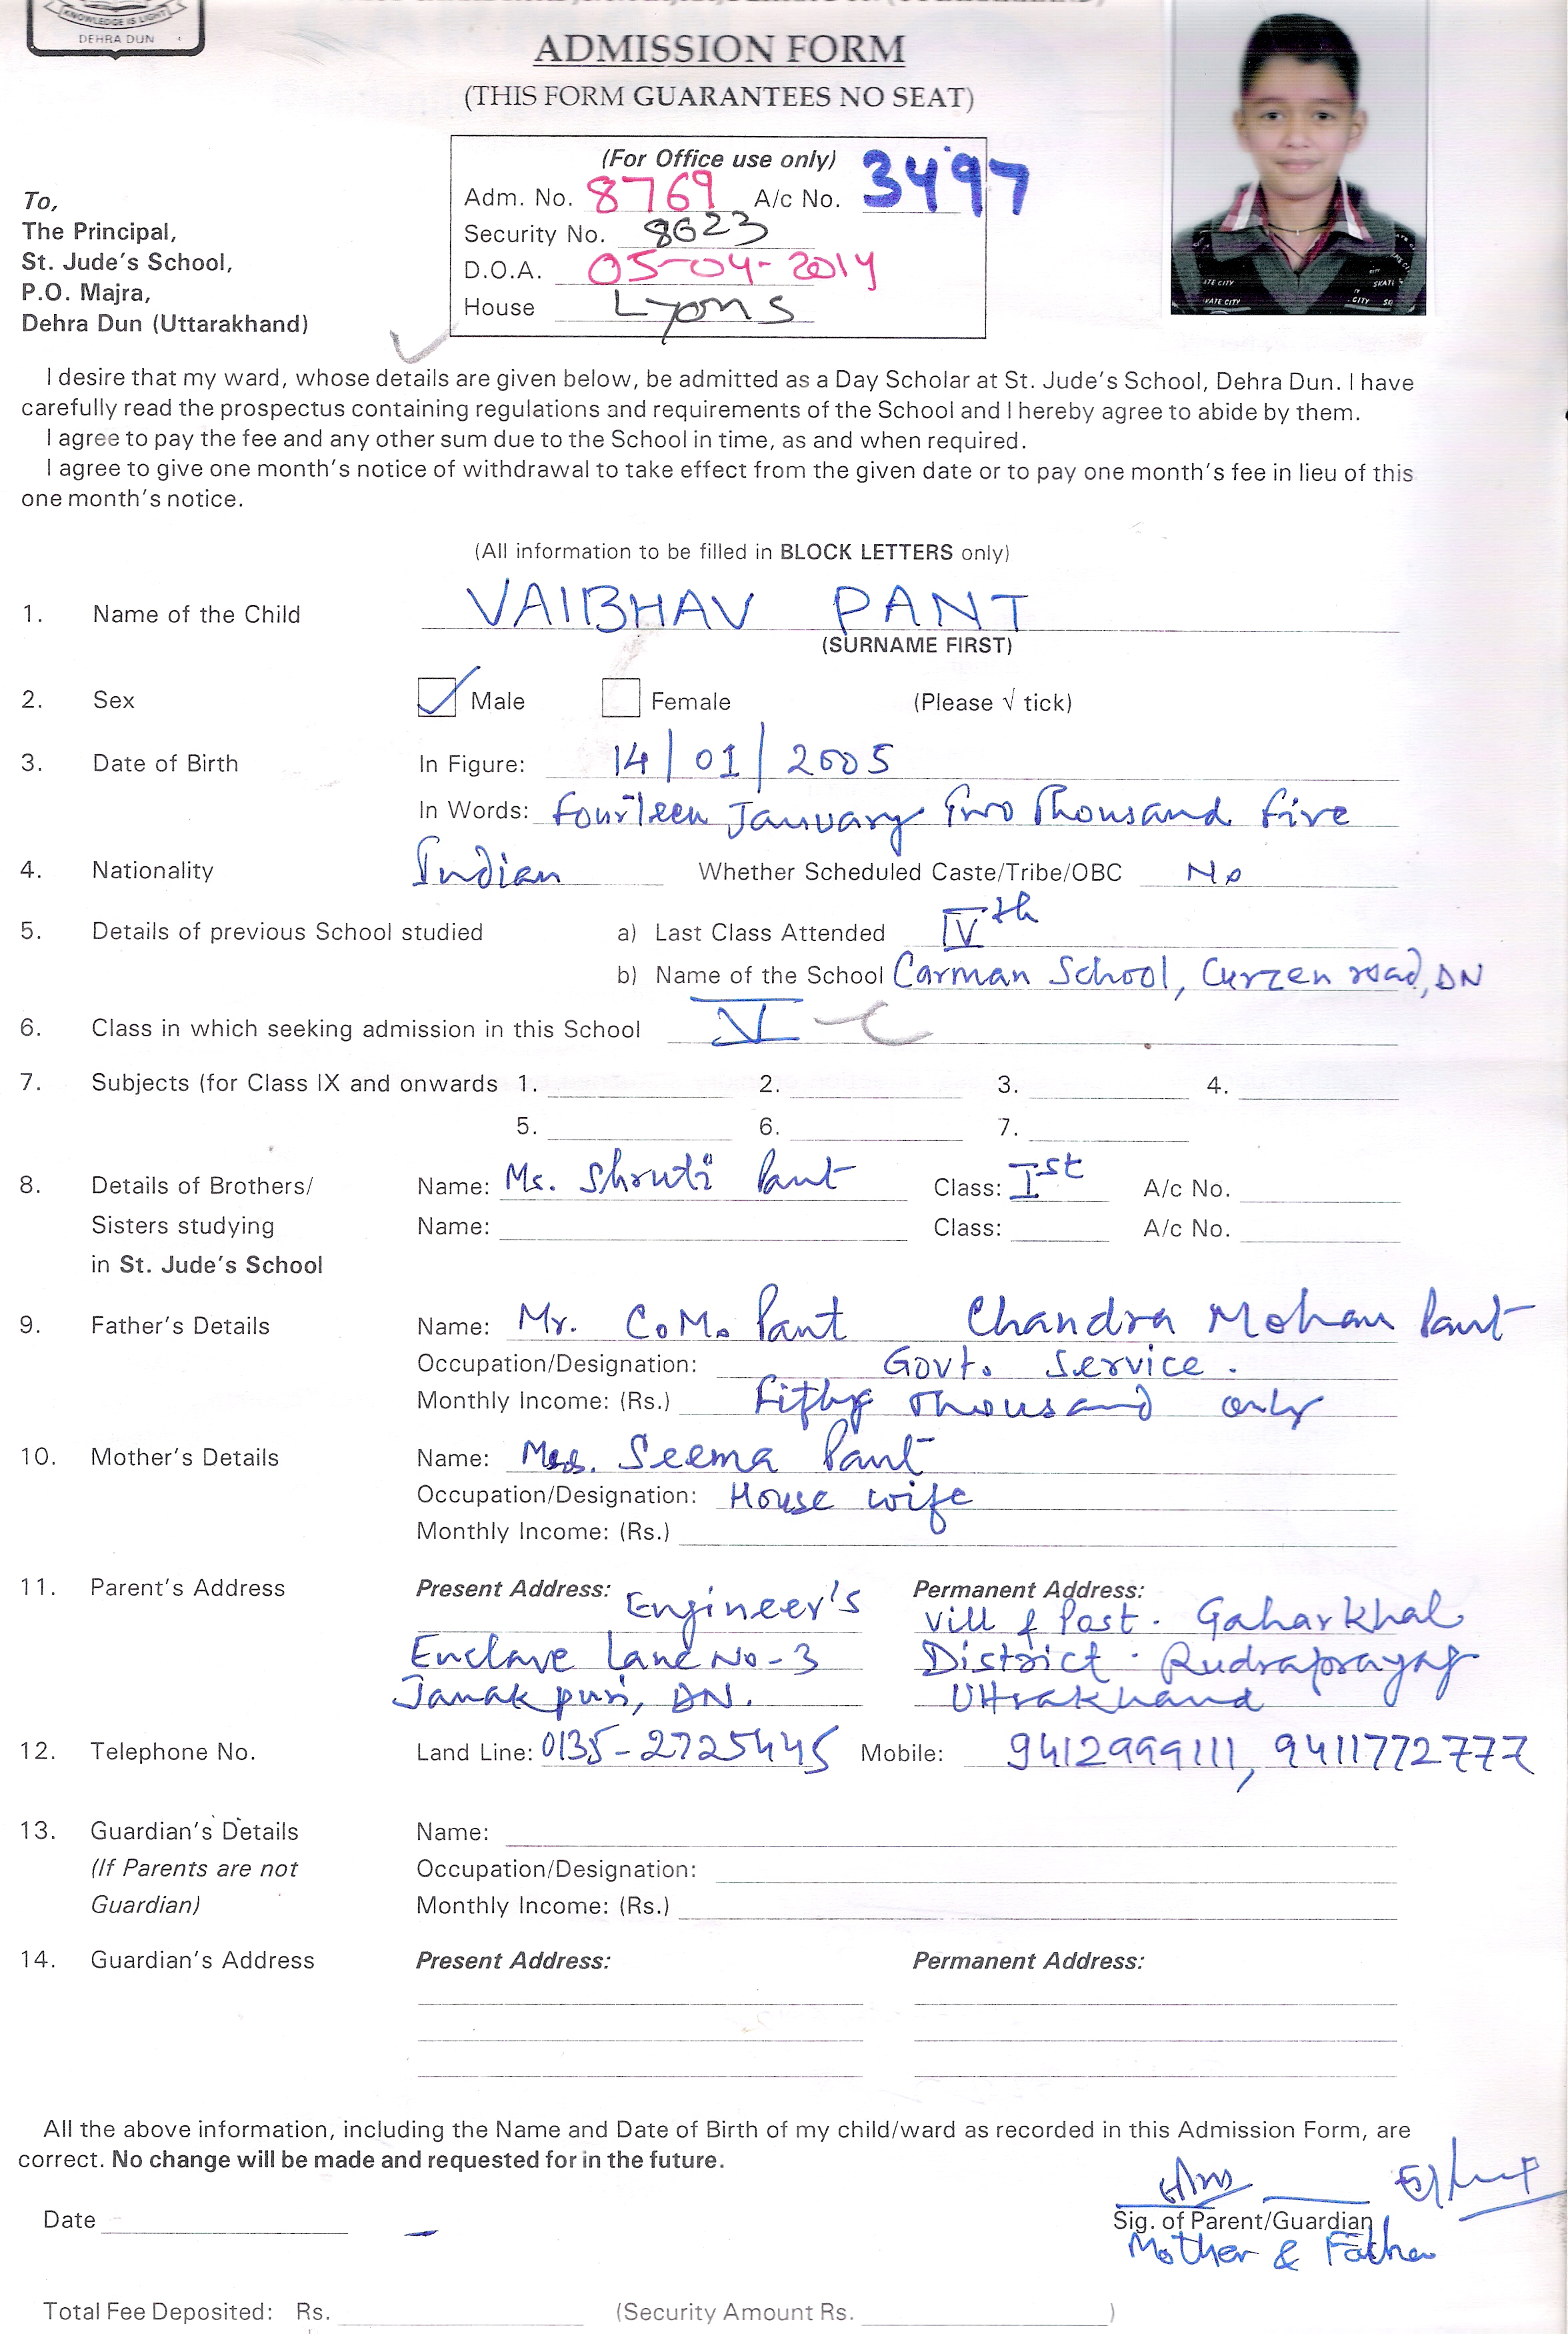 KNOWLEDGE IS LIGHT
DEHRA DUN
ADMISSION FORM
(THIS FORM GUARANTEES NO SEAT)
(For Office use only)
Adm. No. 8769 A/c No. 3497
Security No. 8623
D.O.A. 05-04-2014
House Lyons
To,
The Principal,
St. Jude's School,
P.O. Majra,
Dehra Dun (Uttarakhand)
I desire that my ward, whose details are given below, be admitted as a Day Scholar at St. Jude's School, Dehra Dun. I have
carefully read the prospectus containing regulations and requirements of the School and I hereby agree to abide by them.
I agree to pay the fee and any other sum due to the School in time, as and when required.
I agree to give one month's notice of withdrawal to take effect from the given date or to pay one month's fee in lieu of this
one month's notice.
(All information to be filled in BLOCK LETTERS only)
1. Name of the Child VAIBHAV PANT
(SURNAME FIRST)
2. Sex Male Female (Please √ tick)
3. Date of Birth In Figure: 14/01/2005
In Words: Fourteen January Two Thousand Five
4. Nationality Indian Whether Scheduled Caste/Tribe/OBC No
5. Details of previous School studied a) Last Class Attended IVth
b) Name of the School Carman School, Curzen road, DN
6. Class in which seeking admission in this School V C
7. Subjects (for Class IX and onwards 1. 2. 3. 4.
5. 6. 7.
8. Details of Brothers/ Name: Ms. Shruti Pant Class: Ist A/c No.
Sisters studying Name: Class: A/c No.
in St. Jude's School
9. Father's Details Name: Mr. C.M. Pant Chandra Mohan Pant
Occupation/Designation: Govt. Service.
Monthly Income: (Rs.) Fifty Thousand only
10. Mother's Details Name: Mrs. Seema Pant
Occupation/Designation: House wife
Monthly Income: (Rs.)
11. Parent's Address Present Address: Engineer's Permanent Address:
Vill & Post. Gaharkhal
Enclave Lane No-3 District. Rudraprayag
Janakpuri, DN. Uttrakhand
12. Telephone No. Land Line: 0135-2725445 Mobile: 9412999111, 9411772777
13. Guardian's Details Name:
(If Parents are not Occupation/Designation:
Guardian) Monthly Income: (Rs.)
14. Guardian's Address Present Address: Permanent Address:
All the above information, including the Name and Date of Birth of my child/ward as recorded in this Admission Form, are
correct. No change will be made and requested for in the future.
Date Sig. of Parent/Guardian
Mother & Father
Total Fee Deposited: Rs. (Security Amount Rs. )